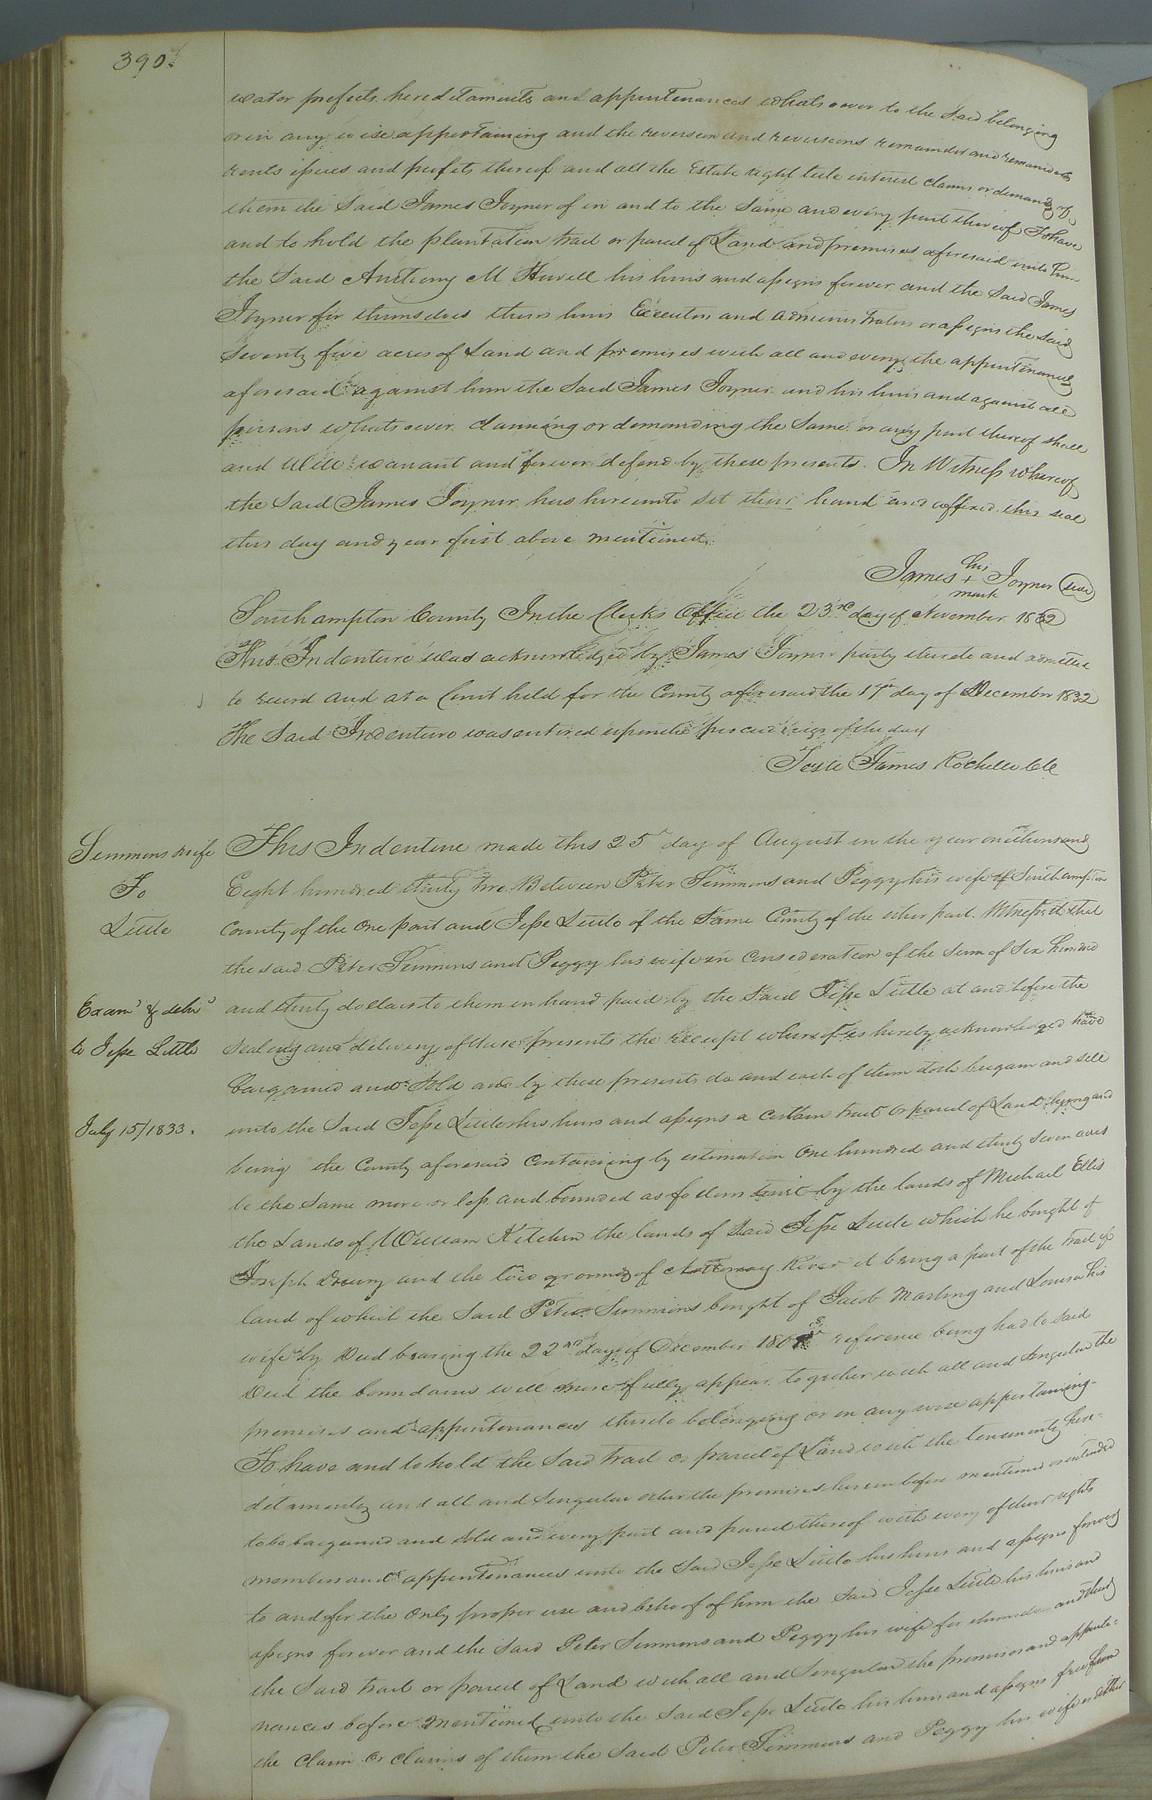 390
water profits hereditaments and appurtenances whatsoever to the Said belonging
or in any wise appertaining and the reversion and reversions remainder and remainders
rents issues and profits thereof and all the Estate right title interest claim or demand of
them the Said James Joyner of in and to the Same and every part thereof To have
and to hold the plantation tract or parcel of Land and premises aforesaid unto him
the Said Anthony M Howell his heirs and assigns forever and the Said James
Joyner for themselves theirs heirs Executors and administrators or assigns the Said
Seventy five acres of Land and premises with all and every the appurtenances
aforesaid against him the Said James Joyner and his heirs and against all
persons whatsoever claiming or demanding the Same or any part thereof shall
and Will warrant and forever defend by these presents. In Witness whereof
the Said James Joyner has hereunto set their hand and affixed this seal
this day and year first above mentioned.
James his + mark Joyner seal
Southampton County In the Clerk's Office the 23rd day of November 1832
This Indenture was acknowledged by James Joyner party thereto and admitted
to record and at a Court held for the County aforesaid the 17th day of December 1832
The Said Indenture was entered upon the proceedings of the day
Teste James Rochelle Clk
Simmons & wife
To
Little
Examd & delivd
to Jesse Little
July 15/1833.
This Indenture made this 25th day of August in the year one thousand
Eight hundred thirty two Between Peter Simmons and Peggy his wife of Southampton
County of the One part and Jesse Little of the Same County of the other part. Witnesseth that
the said Peter Simmons and Peggy his wife in Consideration of the Sum of Six hundred
and thirty dollars to them in hand paid by the Said Jesse Little at and before the
Sealing and delivery of these presents the receipt whereof is hereby acknowledged have
bargained and Sold and by these presents do and each of them doth bargain and sell
unto the Said Jesse Little his heirs and assigns a certain tract or parcel of Land lying and
being the County aforesaid Containing by estimation One hundred and thirty Seven acres
be the Same more or less and bounded as follows towit by the lands of Michael Ellis
the Lands of William Kitchen the lands of Said Jesse Little which he bought of
Joseph Drewry and the low grounds of Nottoway River it being a part of the tract of
land of which the Said Peter Simmons bought of Jacob Marling and Louisa his
wife by Deed bearing the 22nd day of December 180 reference being had to said
Deed the boundaries will more fully appear together with all and Singular the
premises and appurtenances thereto belonging or in any wise appertaining
To have and to hold the Said tract or parcel of Land with the tenements here-
ditaments and all and Singular other the premises herein before mentioned or intended
to be bargained and Sold and every part and parcel thereof with every of their rights
members and appurtenances unto the Said Jesse Little his heirs and assigns forever
to and for the Only proper use and behoof of him the Said Jesse Little his heirs and
assigns forever and the Said Peter Simmons and Peggy his wife for themselves and their
the Said tract or parcel of Land with all and Singular the premises and appurte-
nances before mentioned unto the Said Jesse Little his heirs and assigns free from
the Claim or Claims of them the Said Peter Simmons and Peggy his wife or either